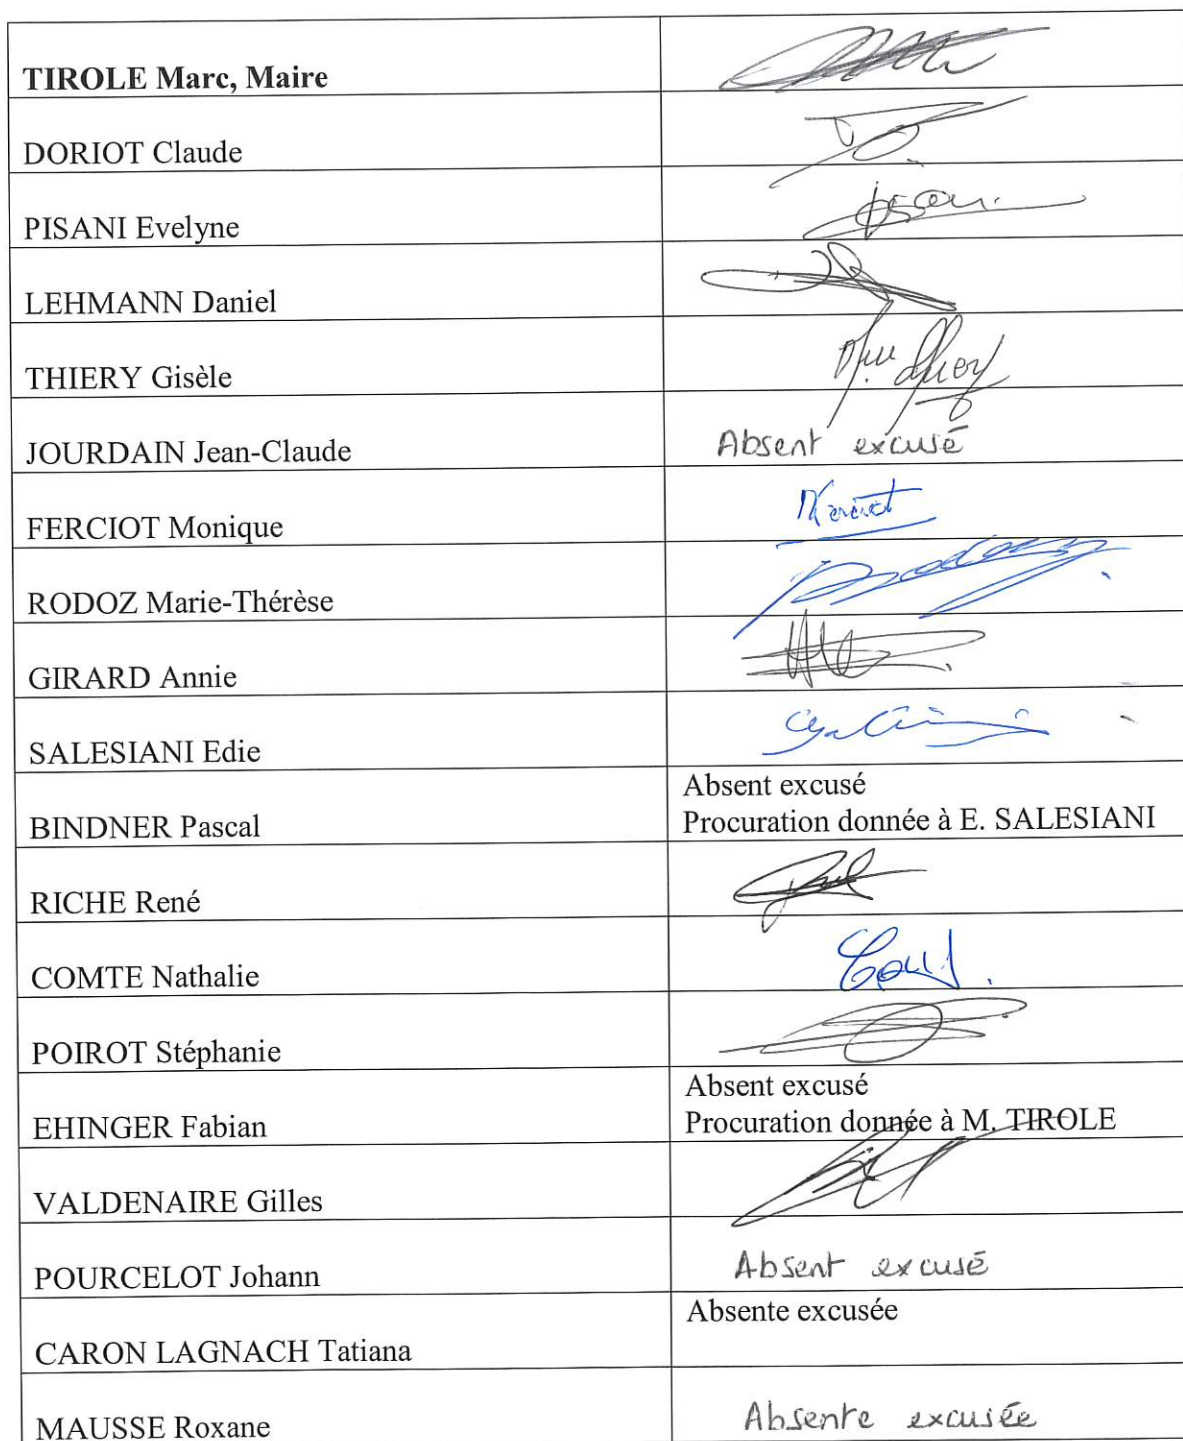 TIROLE Marc, Maire
DORIOT Claude
PISANI Evelyne
LEHMANN Daniel
THIERY Gisèle
JOURDAIN Jean-Claude Absent excusé
FERCIOT Monique
RODOZ Marie-Thérèse
GIRARD Annie
SALESIANI Edie
Absent excusé
BINDNER Pascal Procuration donnée à E. SALESIANI
RICHE René
COMTE Nathalie
POIROT Stéphanie
Absent excusé
EHINGER Fabian Procuration donnée à M. TIROLE
VALDENAIRE Gilles
POURCELOT Johann Absent excusé
Absente excusée
CARON LAGNACH Tatiana
MAUSSE Roxane Absente excusée